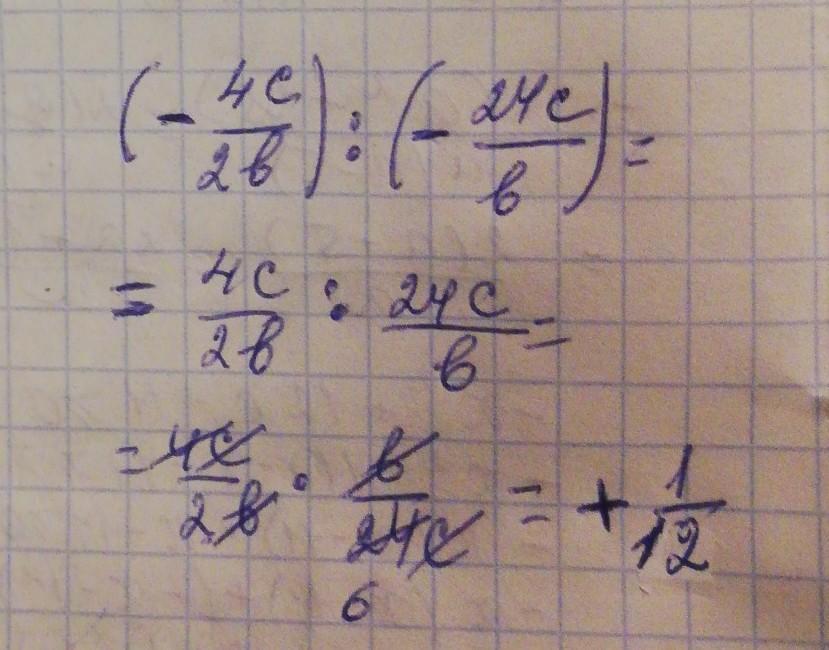 (- 4c/2b) : (- 24c/b) =
= 4c/2b : 24c/b =
= 4c/2b · b/24c = + 1/12
6